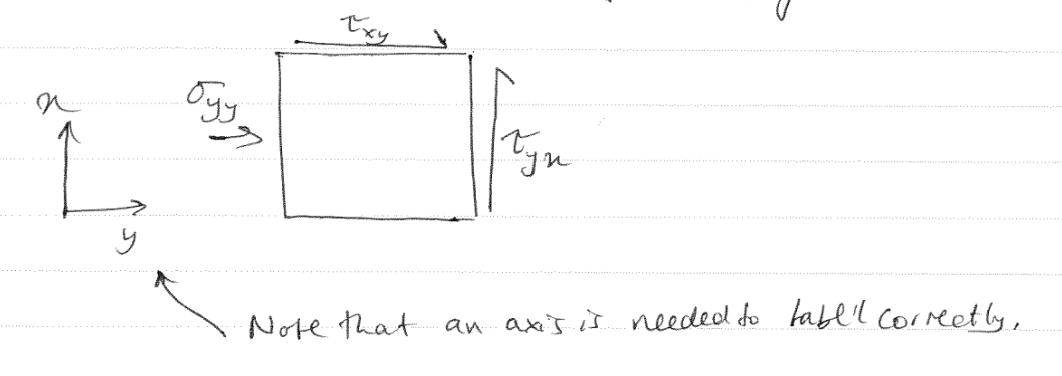 τxy
x
σyy
τyx
y
Note that an axis is needed to label correctly.